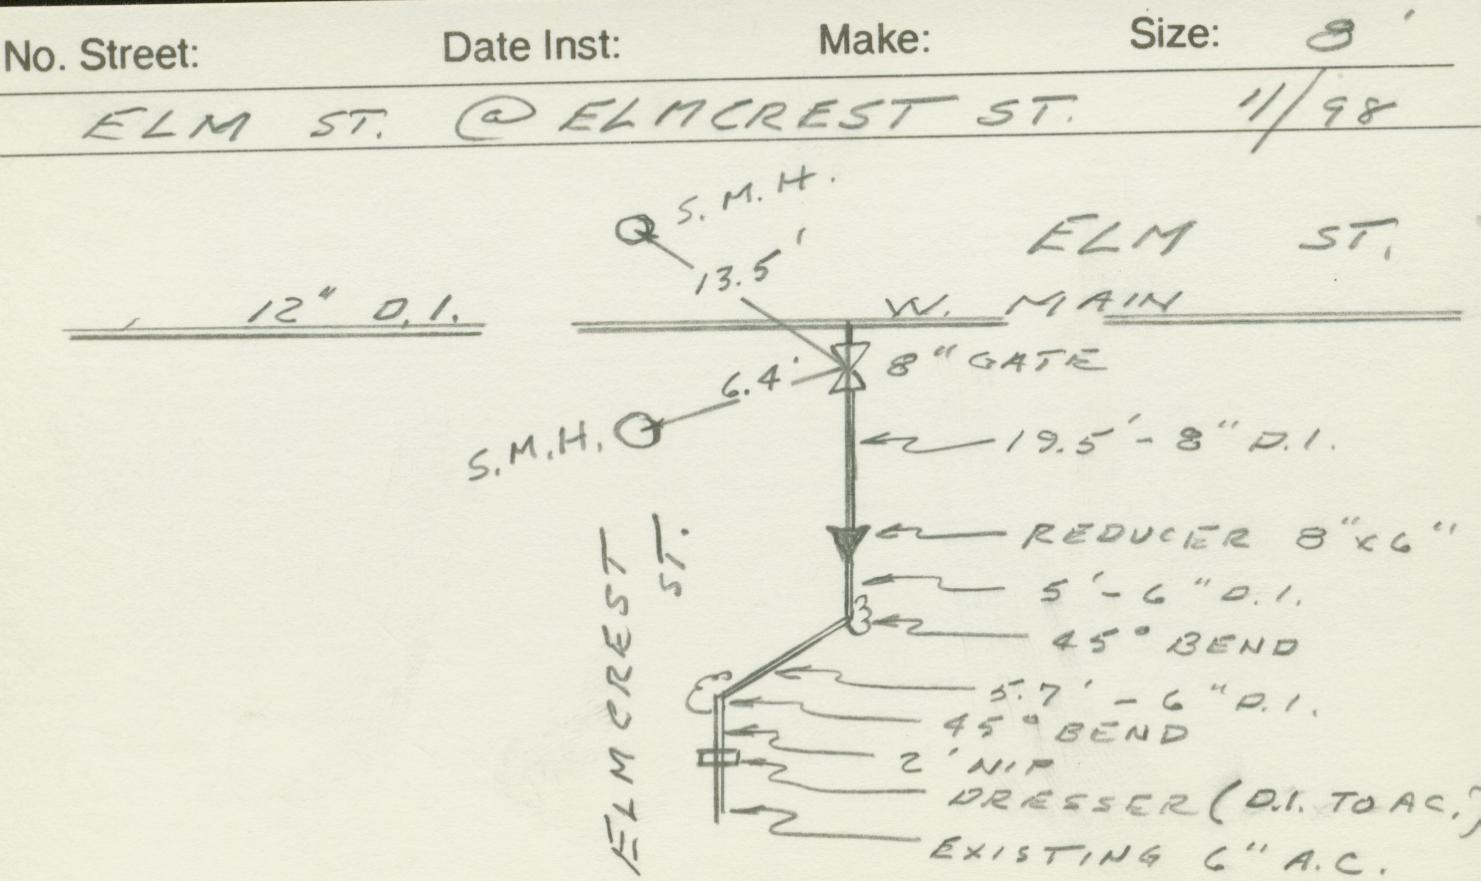 No. Street: Date Inst: Make: Size: 8'
ELM ST. @ ELMCREST ST. 11/98
S.M.H.
ELM ST.
13.5'
12" D.I.
W. MAIN
8" GATE
6.4'
S.M.H.
19.5' - 8" D.I.
ELMCREST ST.
REDUCER 8" x 6"
5' - 6" D.I.
45° BEND
5.7' - 6" D.I.
45° BEND
2' NIP
DRESSER (D.I. TO A.C.)
EXISTING 6" A.C.